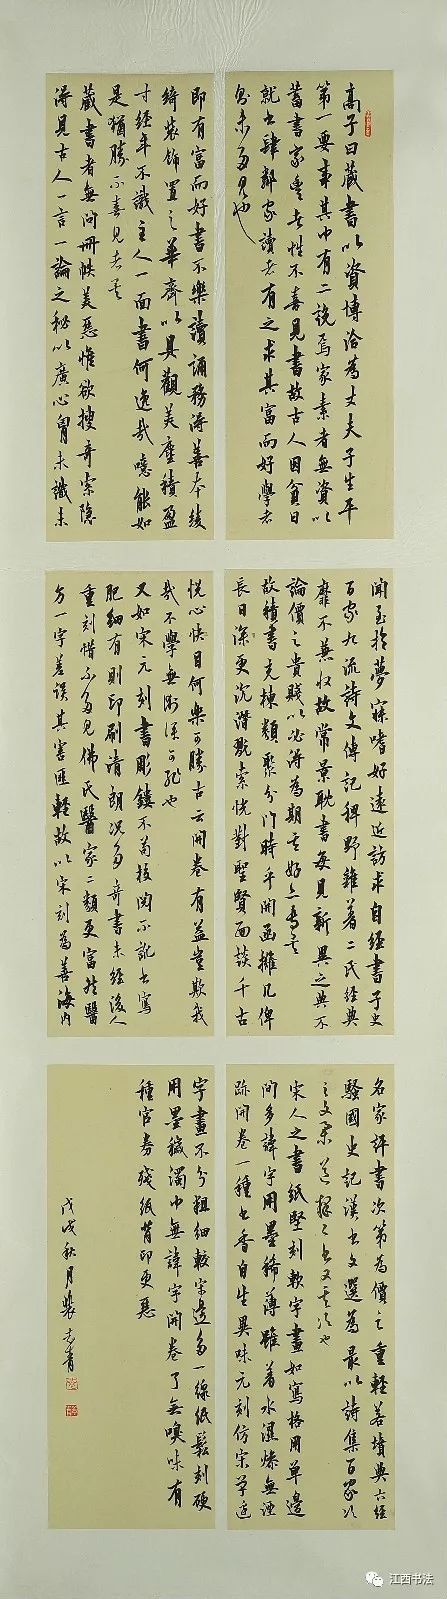 高子曰藏書以資博洽為丈夫子生平
第一要事其中有二説焉家素者無資以
蓄書家豐者性不喜見書故古人因貧日
就書肆鄰家讀者有之求其富而好學者
則未多見也
即有富而好書不樂讀誦務得善本綾
綺裝飾置之華齋以具觀美塵積盈
寸經年不識主人一面書何逸哉噫能如
是猶勝不喜見者矣
藏書者無問冊帙美惡惟欲搜奇索隱
得見古人一言一論之秘以廣心胸未識未
聞至於夢寐嗜好遠近訪求自經書子史
百家九流詩文傳記稗野雜著二氏經典
靡不兼收故常景耽書每見新異之典不
論價之貴賤以必得為期其好亦專矣
故積書充棟類聚分門時乎開函攤几俾
長日深更沉潛玩索恍對聖賢面談千古
悅心快目何樂可勝古云開卷有益豈欺我
哉不學無術深可耻也
又如宋元刻書雕鏤不苟校閱不訛書寫
肥細有則印刷清朗況多奇書未經後人
重刻惜不多見佛氏醫家二類更富然醫
方一字差誤其害匪輕故以宋刻為善海內
名家評書次第為價之重輕若墳典六經
騷國史記漢書文選為最以詩集百家次
之文集道釋二書又其次也
宋人之書紙堅刻軟字畫如寫格用單邊
間多諱字用墨稀薄雖着水濕燥無湮
跡開卷一種書香自生異味元刻仿宋單邊
字畫不分粗細較宋邊多一線紙鬆刻硬
用墨穢濁中無諱字開卷了無嗅味有
種官券殘紙背印更惡
戊戌秋月裴志青
江西书法